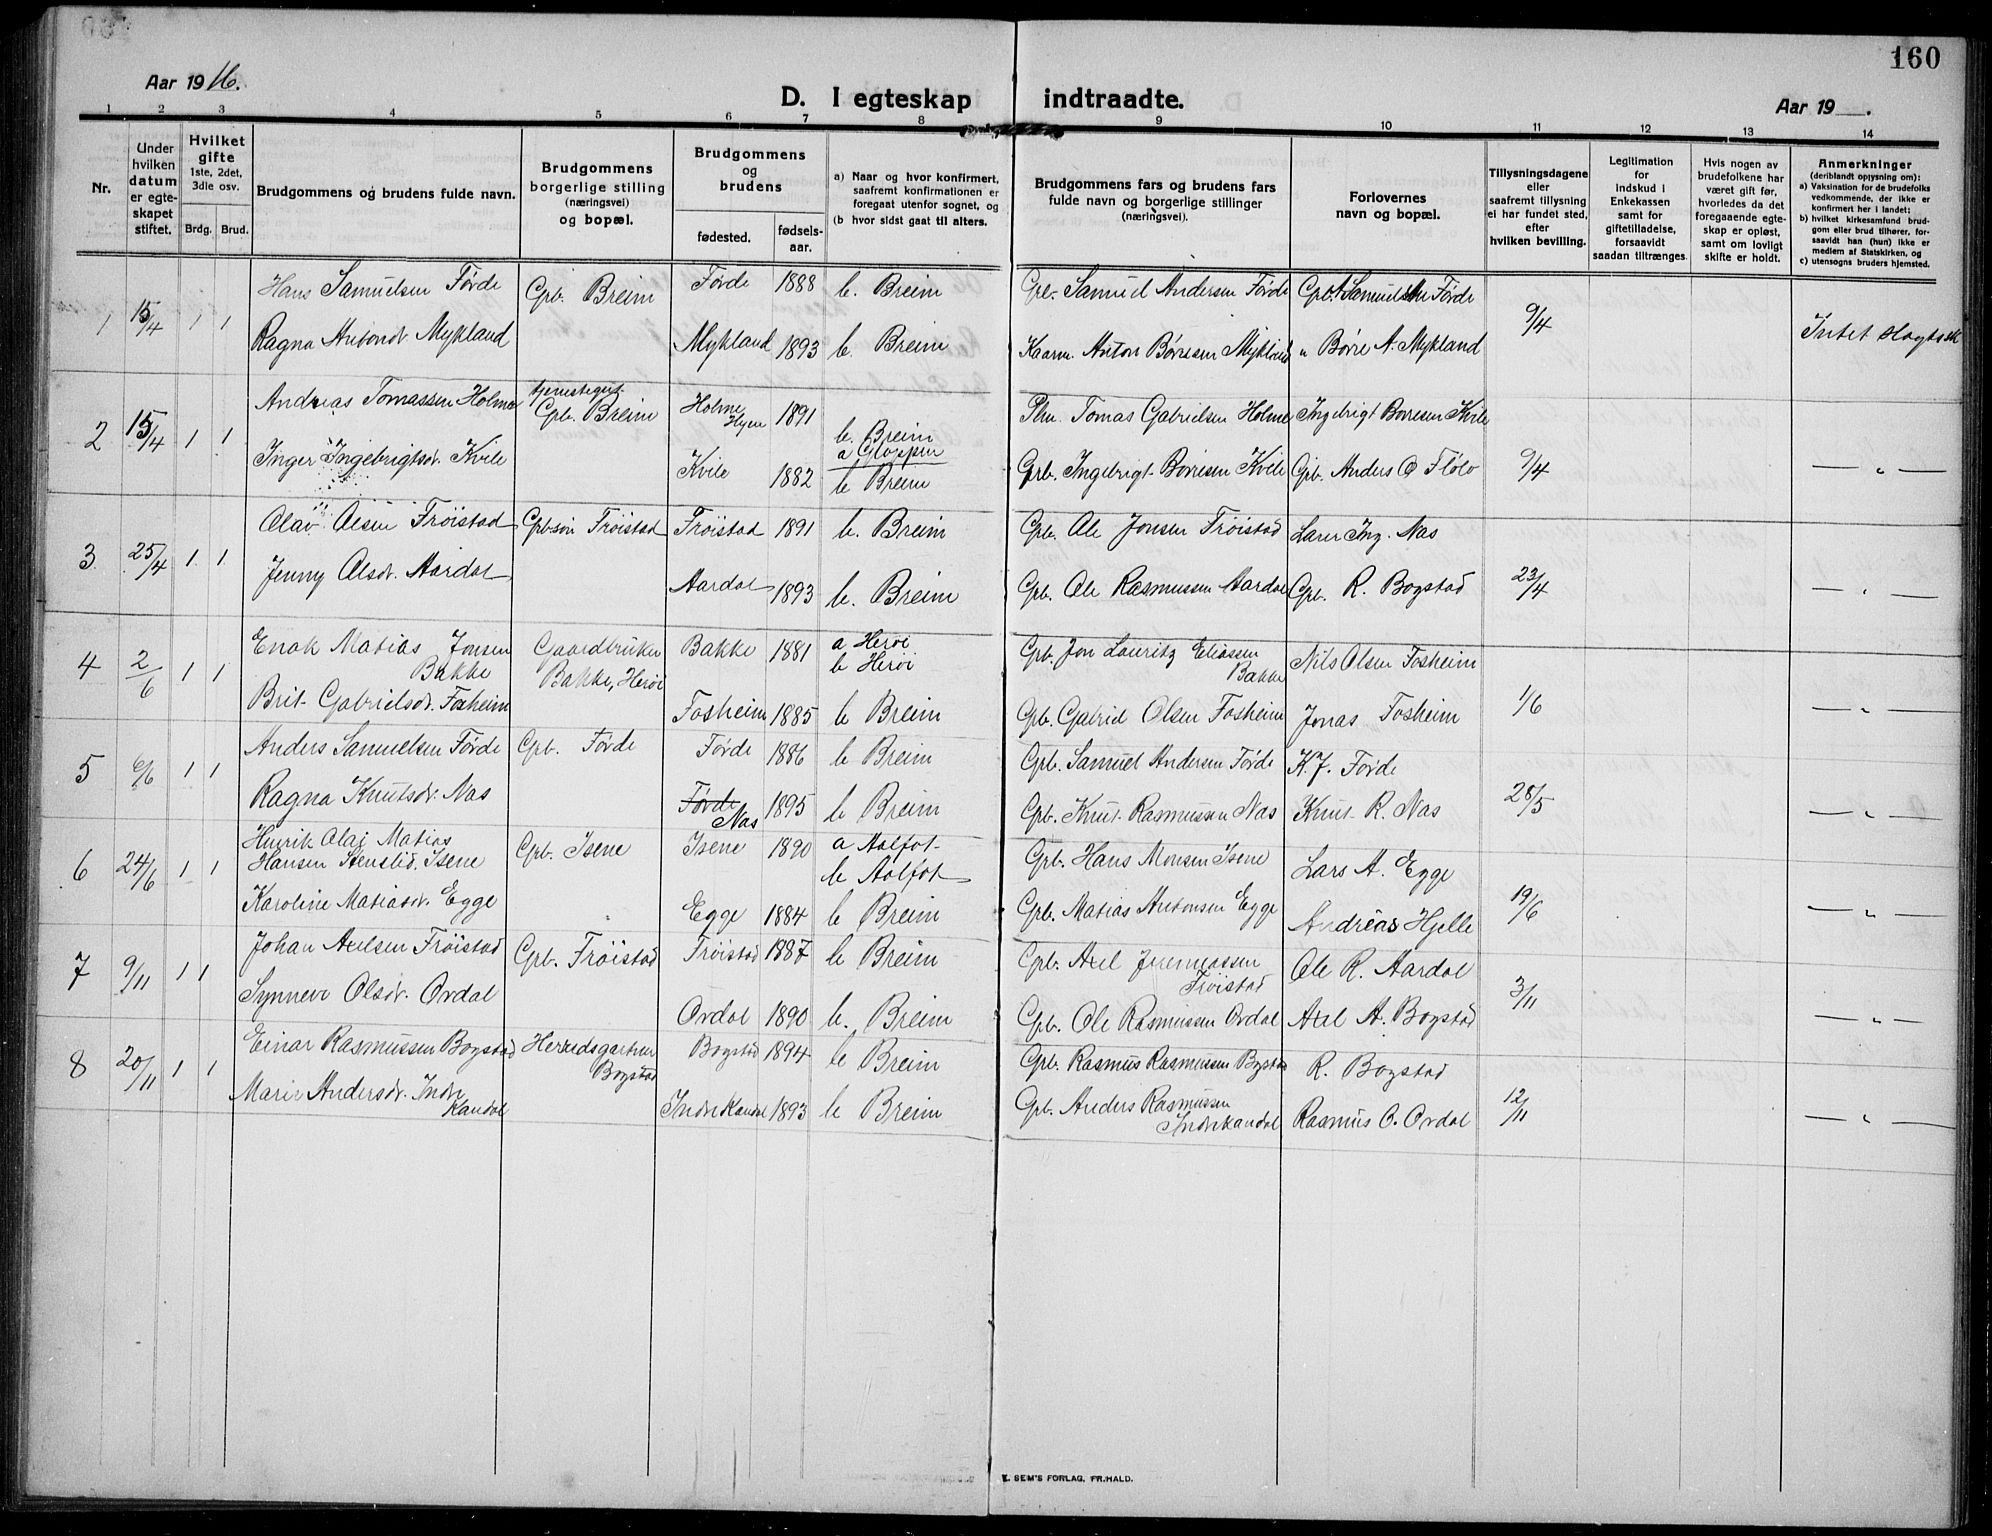 160
Aar 1916.
D. I egteskap indtraadte.
Aar 19 .
1 2 3 4 5 6 7 8 9 10 11 12 13 14
Nr.
Under hvilken datum er egteskapet stiftet.
Hvilket gifte 1ste, 2det, 3die osv.
Brdg. Brud.
Brudgommens og brudens fulde navn.
Brudgommens borgerlige stilling (næringsvei) og bopæl.
Brudgommens og brudens
fødested. fødsels-aar.
a) Naar og hvor konfirmert, saafremt konfirmationen er foregaat utenfor sognet, og
(b hvor sidst gaat til alters.
Brudgommens fars og brudens fars fulde navn og borgerlige stillinger (næringsvei).
Forlovernes navn og bopæl.
Tillysningsdagene eller saafremt tillysning ei har fundet sted, efter hvilken bevilling.
Legitimation for indskud i Enkekassen samt for giftetilladelse, forsaavidt saadan tiltrænges.
Hvis nogen av brudefolkene har været gift før, hvorledes da det foregaaende egteskap er opløst, samt om lovligt skifte er holdt.
Anmerkninger (deriblandt oplysning om):
a) Vaksination for de brudefolks vedkommende, der ikke er konfirmert her i landet;
b) hvilket kirkesamfund brudgom eller brud tilhører, forsaavidt han (hun) ikke er medlem af Statskirken, og
c) utensogns bruders hjemsted.
1 15/4 1 1 Hans Samuelsen Förde Grb. Breim Förde 1888 b. Breim Grb. Samuel Andersen Förde Grb. A Samuelsen Förde 9/4
Ragna Antonsdr Mykland Mykland 1893 b. Breim Kaarm. Anton Börresen Mykland " Börre A. Mykland Intet
2 15/4 1 1 Andreas Tomassen Holme Grb. Breim Holme Hyen 1891 b. Breim Plm. Tomas Gabrielsen Holme Ingebrigt Börresen Kvile 9/4
Inger Ingebrigtsdr. Kvile Kvile 1882 a Gloppen b Breim Grb. Ingebrigt Börresen Kvile Grb. Anders O Flölo — " —
3 25/4 1 1 Olav Olsen Fröistad Grb.sön Fröistad Fröistad 1891 b. Breim Grb. Ole Jonsen Fröistad Lærer Ing. Nas 23/4
Jenny Olsdr. Aardal Aardal 1893 b. Breim Grb. Ole Rasmussen Aardal Grb. R. Bogstad — " —
4 2/6 1 1 Enok Matias Jonsen Bakke Gaardbruker Bakke, Heröi Bakke 1881 a Heröi b Heröi Grb. Jon Lauritz Eliassen Bakke Nils Olsen Fosheim 1/6
Brit Gabrielsdr. Fosheim Fosheim 1885 b Breim Grb. Gabriel Olsen Fosheim Jonas Fosheim — " —
5 6/6 1 1 Anders Samuelsen Förde Grb. Förde Förde 1886 b Breim Grb. Samuel Andersen Förde K. J. Förde 28/5
Ragna Knutsdr. Nas Förde Nas 1895 b Breim Grb. Knut Rasmussen Nas Knut R. Nas — " —
6 24/6 1 1 Henrik Olai Matias Hansen Isene Grb. Isene Isene 1890 a Aalfot b Aalfot Grb. Hans Monsen Isene Lars A. Egge 19/6
Karoline Matiasdr. Egge Egge 1884 b Breim Grb. Matias Antonsen Egge Andreas Hjelle — " —
7 9/11 1 1 Johan Axelsen Fröistad Grb. Fröistad Fröistad 1887 b Breim Grb. Axel Fröistad Ole R. Aardal 3/11
Synneve Olsdr. Ordal Ordal 1890 b. Breim Grb. Ole Rasmussen Ordal Axel A. Bogstad — " —
8 20/11 1 1 Einar Rasmussen Bogstad Herredsgartner Bogstad Bogstad 1894 b Breim Grb. Rasmus Rasmussen Bogstad R. Bogstad 12/11
Marie Andersdr. Indrekandal Indrekandal 1893 b Breim Grb. Anders Rasmussen Indrekandal Rasmus O. Ordal — " —
E. SEM'S FORLAG, FR.HALD.